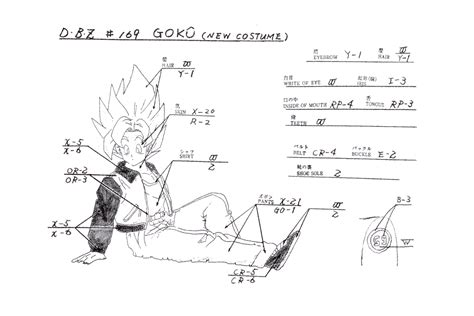 D・B・Z #169 GOKŪ (NEW COSTUME)
眉 EYEBROW Y-1
髪 HAIR W Y-1
髪 HAIR W Y-1
白目 WHITE OF EYE W
IRIS I-3
口の中 INSIDE OF MOUTH RP-4
舌 TONGUE RP-3
歯 TEETH W
肌 SKIN X-20 R-2
X-5 X-6
シャツ SHIRT W 2
ベルト BELT CR-4
バックル BUCKLE E-2
靴の裏 SHOE SOLE 2
OR-2 OR-3
ズボン PANTS X-21 GO-1
W 2
B-3
X-5 X-6
W
CR-5 CR-6